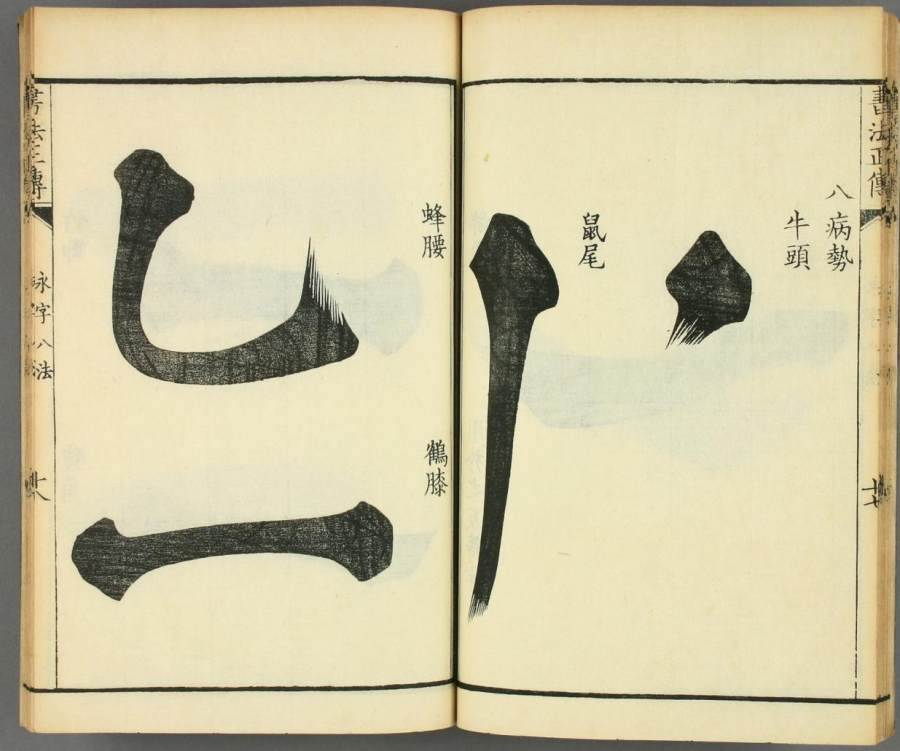 書法正傳
八病勢
牛頭
鼠尾
十七
蜂腰
鶴膝
書法正傳
永字八法
十八